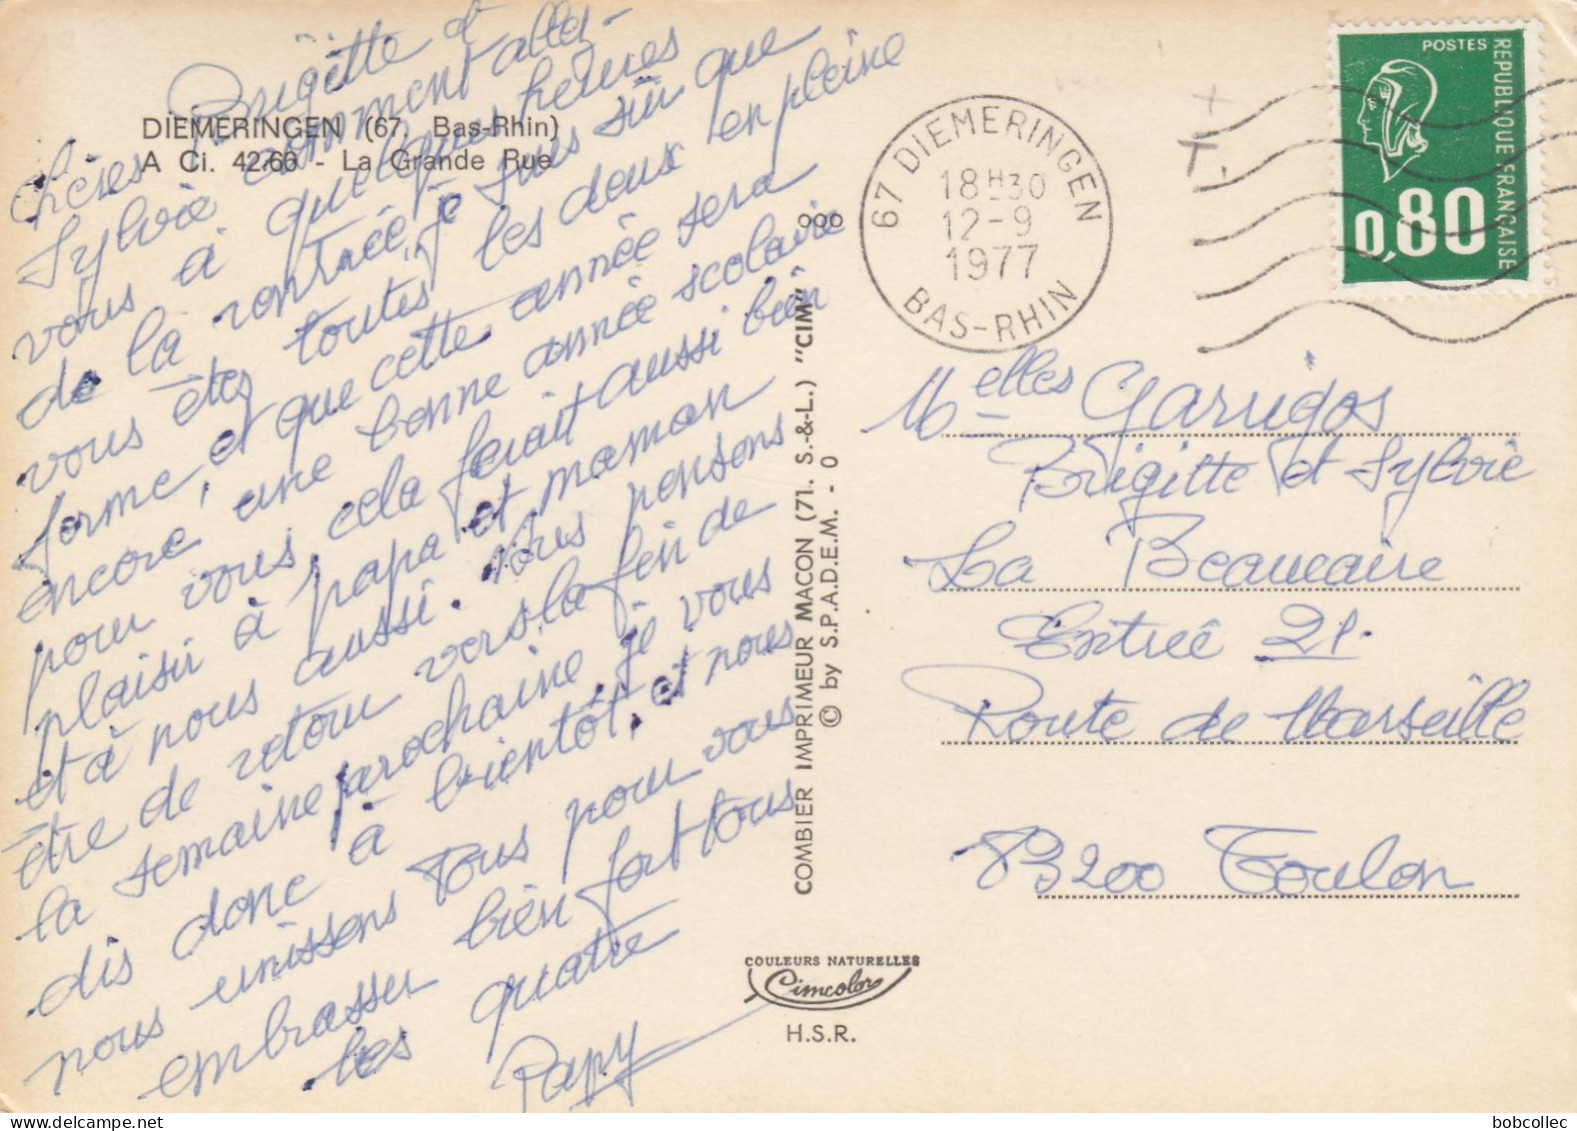 DIEMERINGEN (67. Bas-Rhin)
A Ci. 42.60 - La Grande Rue
Chères Brigitte et
Sylvie comment allez-
vous à quelques heures
de la rentrée, je suis sûr que
vous êtes toutes les deux en pleine
forme, et que cette année sera
encore une bonne année scolaire
pour vous cela ferait aussi bien
plaisir à papa et maman
et à nous aussi. Nous pensons
être de retour vers la fin de
la semaine prochaine, je vous
dis donc à bientôt, et nous
nous unissons tous pour vous
embrasser bien fort tous
les quatre
Papy
COMBIER IMPRIMEUR MACON (71. S.-&-L.) "CIM"
© by S.P.A.D.E.M. - 0
COULEURS NATURELLES
Cimcolor
H.S.R.
67 DIEMERINGEN
18H30
12-9
1977
BAS-RHIN
T.
POSTES
REPUBLIQUE FRANÇAISE
0,80
Melles Garrigos
Brigitte et Sylvie
La Beaucaire
Entrée 21.
Route de Marseille
83200 Toulon
bobcollec